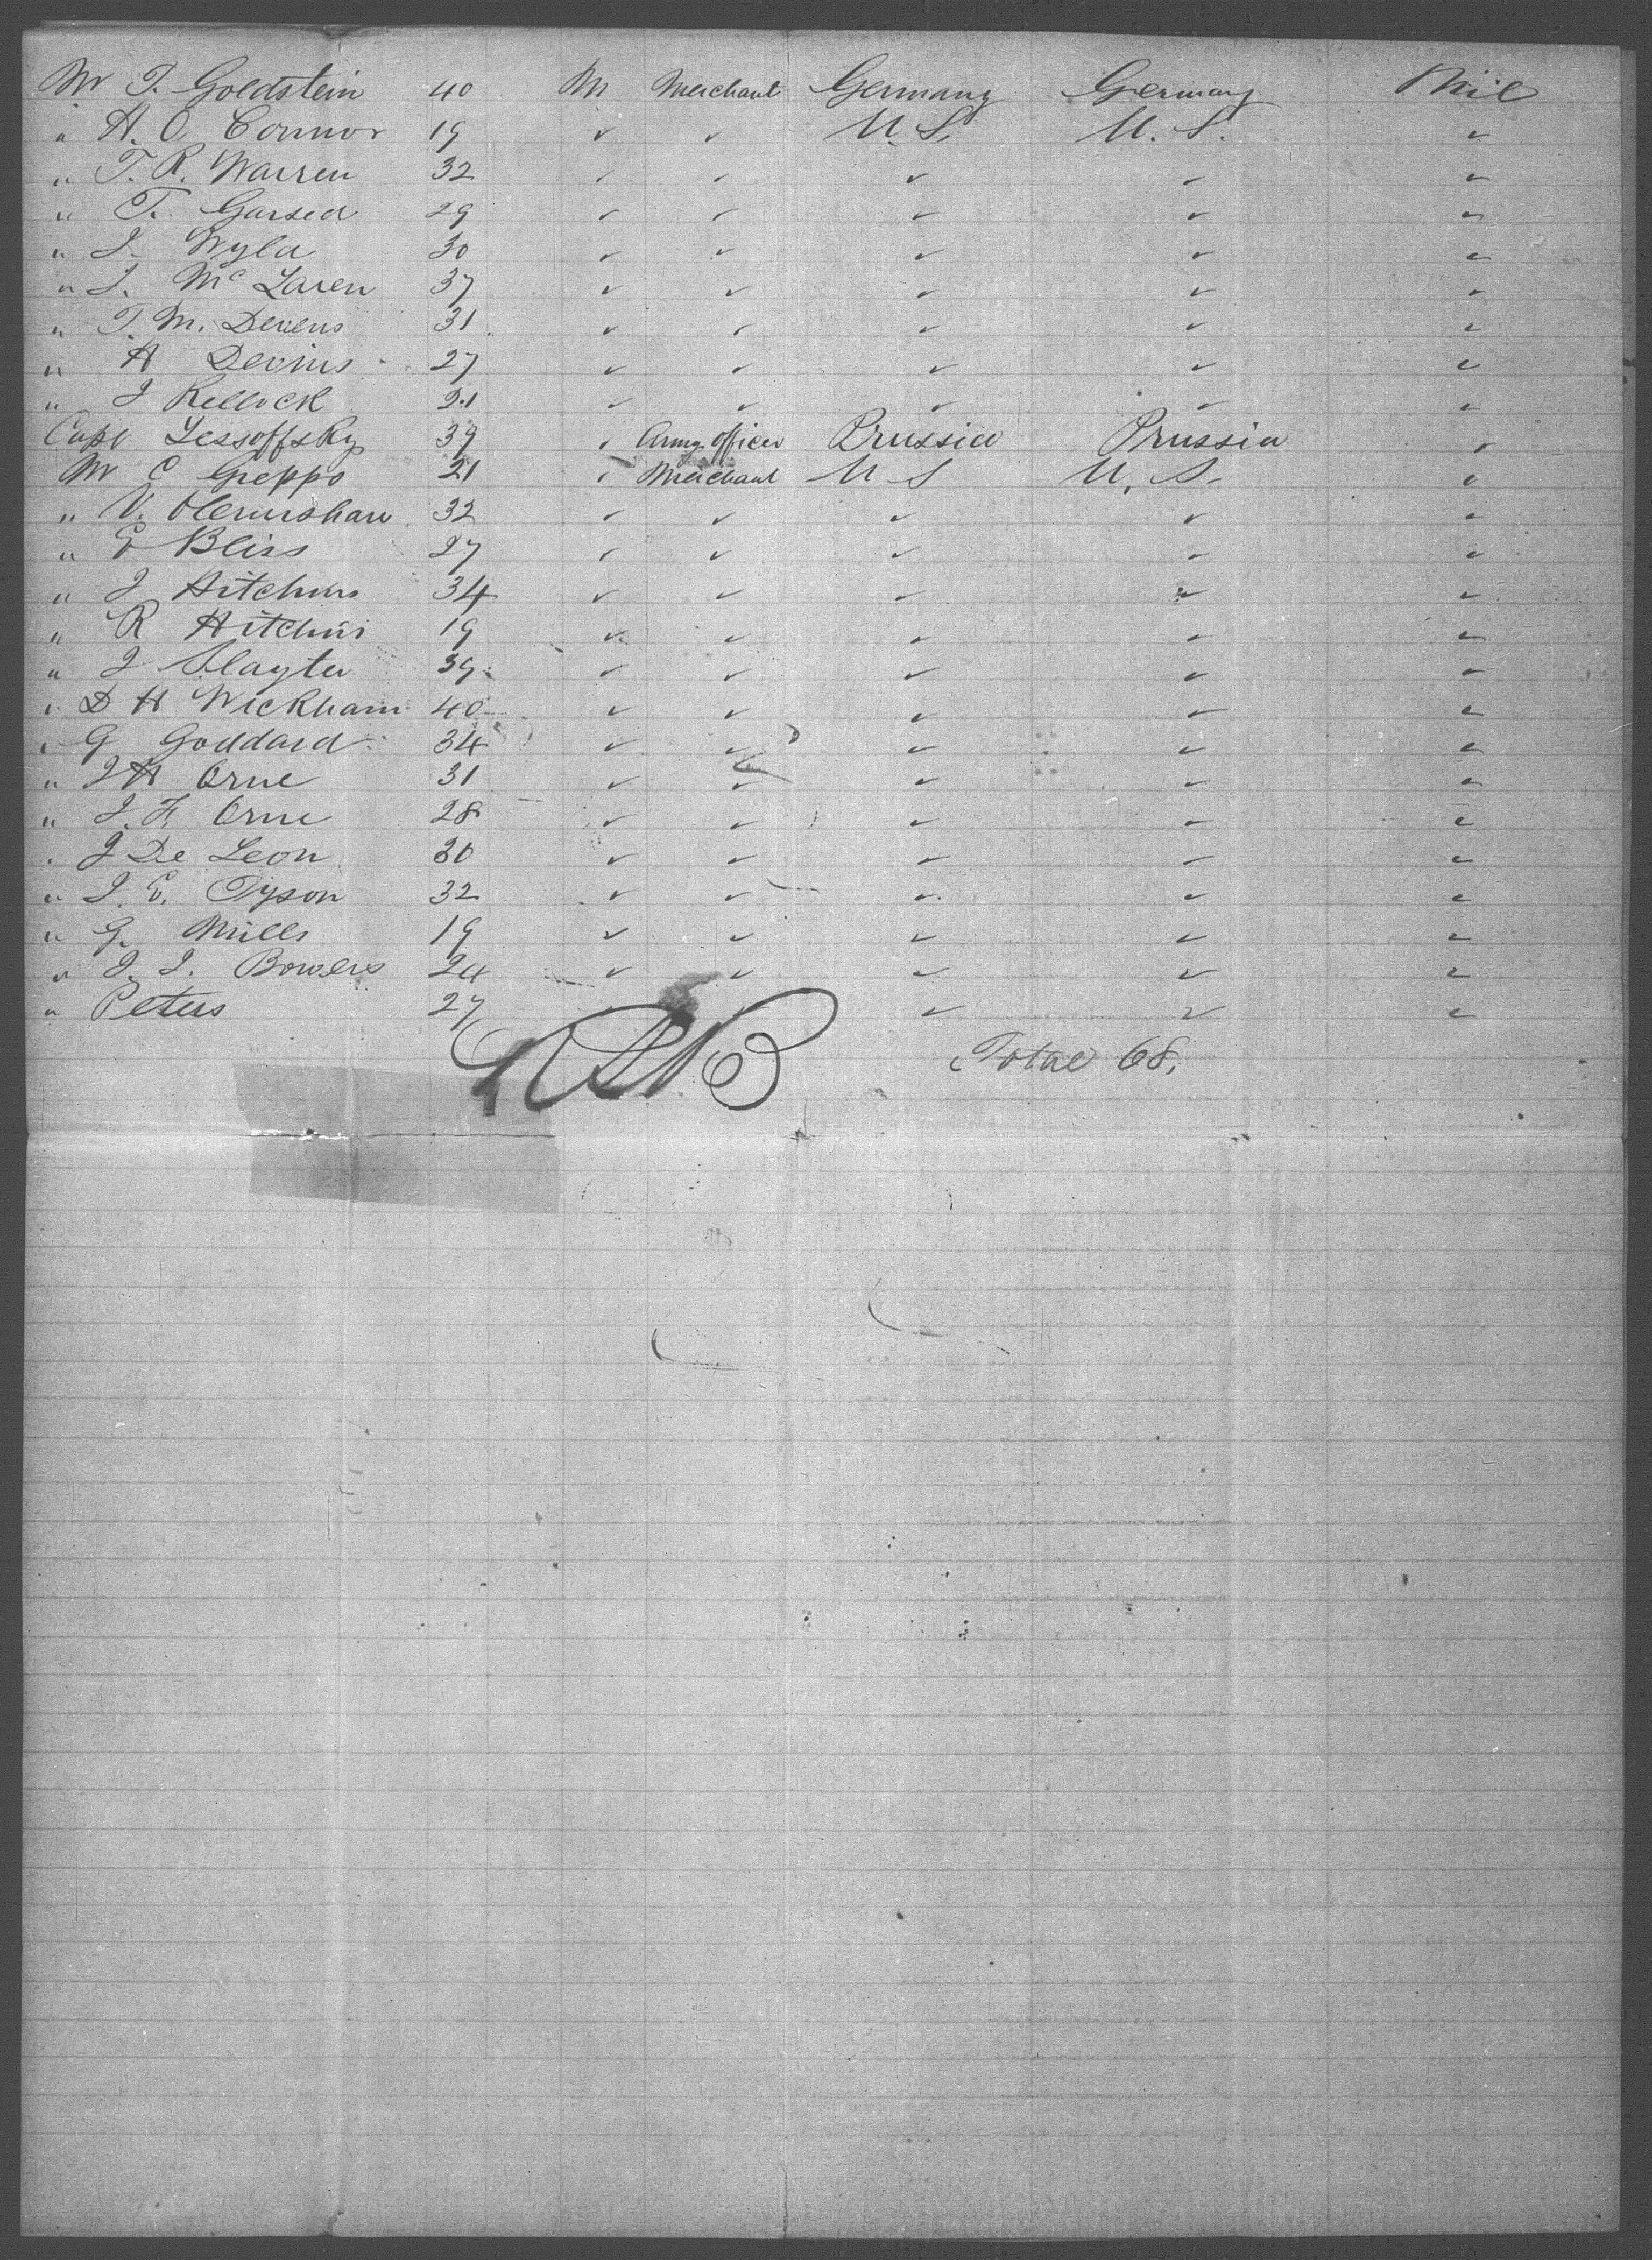 Mr T. Goldstein 40 M Merchant Germany Germany Nil
" H. O. Connor 19 " " U.S. U.S. "
" T. R. Warren 32 " " " " "
" T. Garsed 29 " " " " "
" J. Wyla 30 " " " " "
" J. Mc Laren 37 " " " " "
" T. M. Devens 31 " " " " "
" H Devins 27 " " " " "
" J Kellock 21 " " " " "
Capt Lessoffsky 39 " Army officer Prussia Prussia "
Mr C Greppo 21 " Merchant U S U. S. "
" V. 32 " " " " "
" E Bliss 27 " " " " "
" J Hitchins 34 " " " " "
" R Hitchins 19 " " " " "
" J Slayter 39 " " " " "
" D H Wickham 40 " " " " "
" G Goddard 34 " " " " "
" J H Orne 31 " " " " "
" J. F. Orne 28 " " " " "
" J De Leon 30 " " " " "
" J. E. Tyson 32 " " " " "
" G. Mills 19 " " " " "
" J. J. Bowers 24 " " " " "
" Peters 27 " " "
Total 68.